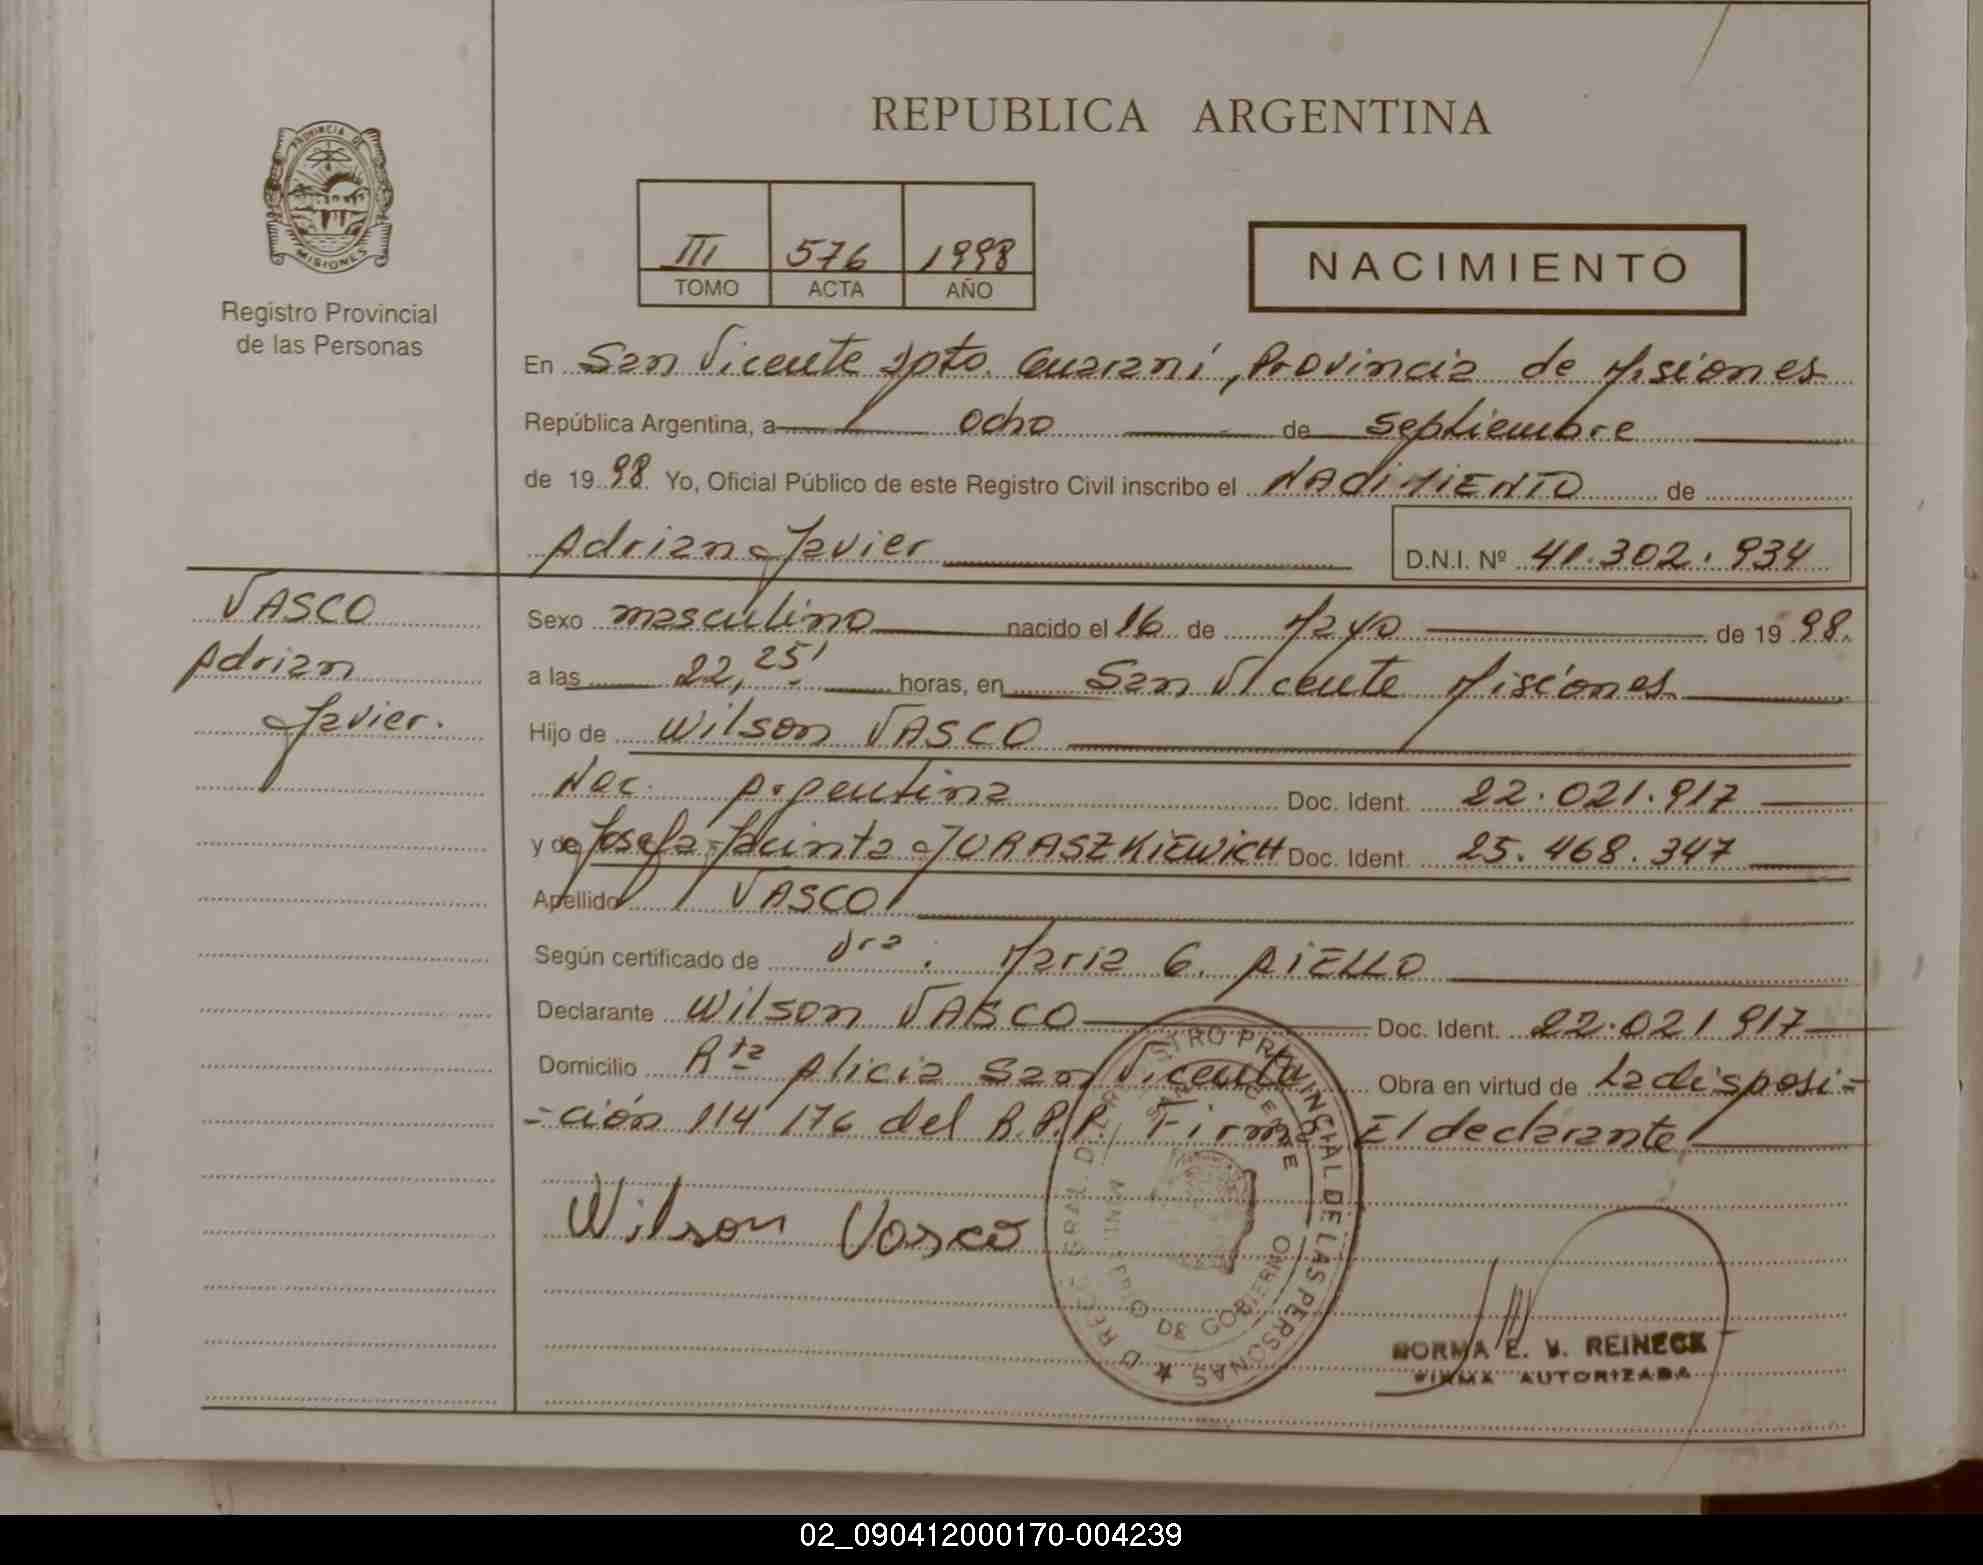 REPUBLICA ARGENTINA
PROVINCIA DE
MISIONES
Registro Provincial
de las Personas
III 576 1998
TOMO ACTA AÑO
NACIMIENTO
En San Vicente Dpto. Guaraní, Provincia de Misiones
República Argentina, a ocho de Septiembre
de 19 98. Yo, Oficial Público de este Registro Civil inscribo el NACIMIENTO de
Adrian Javier
D.N.I. Nº 41.302.934
VASCO
Adrian
Javier.
Sexo masculino nacido el 16 de Mayo de 19 98.
a las 22,25' horas, en San Vicente Misiones
Hijo de Wilson VASCO
Nac. Argentina Doc. Ident. 22.021.917
y de Josefa Jacinta JURASZKIEWICH Doc. Ident. 25.468.347
Apellido VASCO
Según certificado de Dra. Maria G. AIELLO
Declarante Wilson VASCO Doc. Ident. 22.021917
Domicilio Rta Alicia San Vicente Obra en virtud de La disposi=
=ción 114 176 del R.P.P. Firma El declarante
Wilson Vasco
REGISTRO PROVINCIAL DE LAS PERSONAS
SAN VICENTE
MINISTERIO DE GOBIERNO
NORMA E. V. REINECK
FIRMA AUTORIZADA
02_090412000170-004239